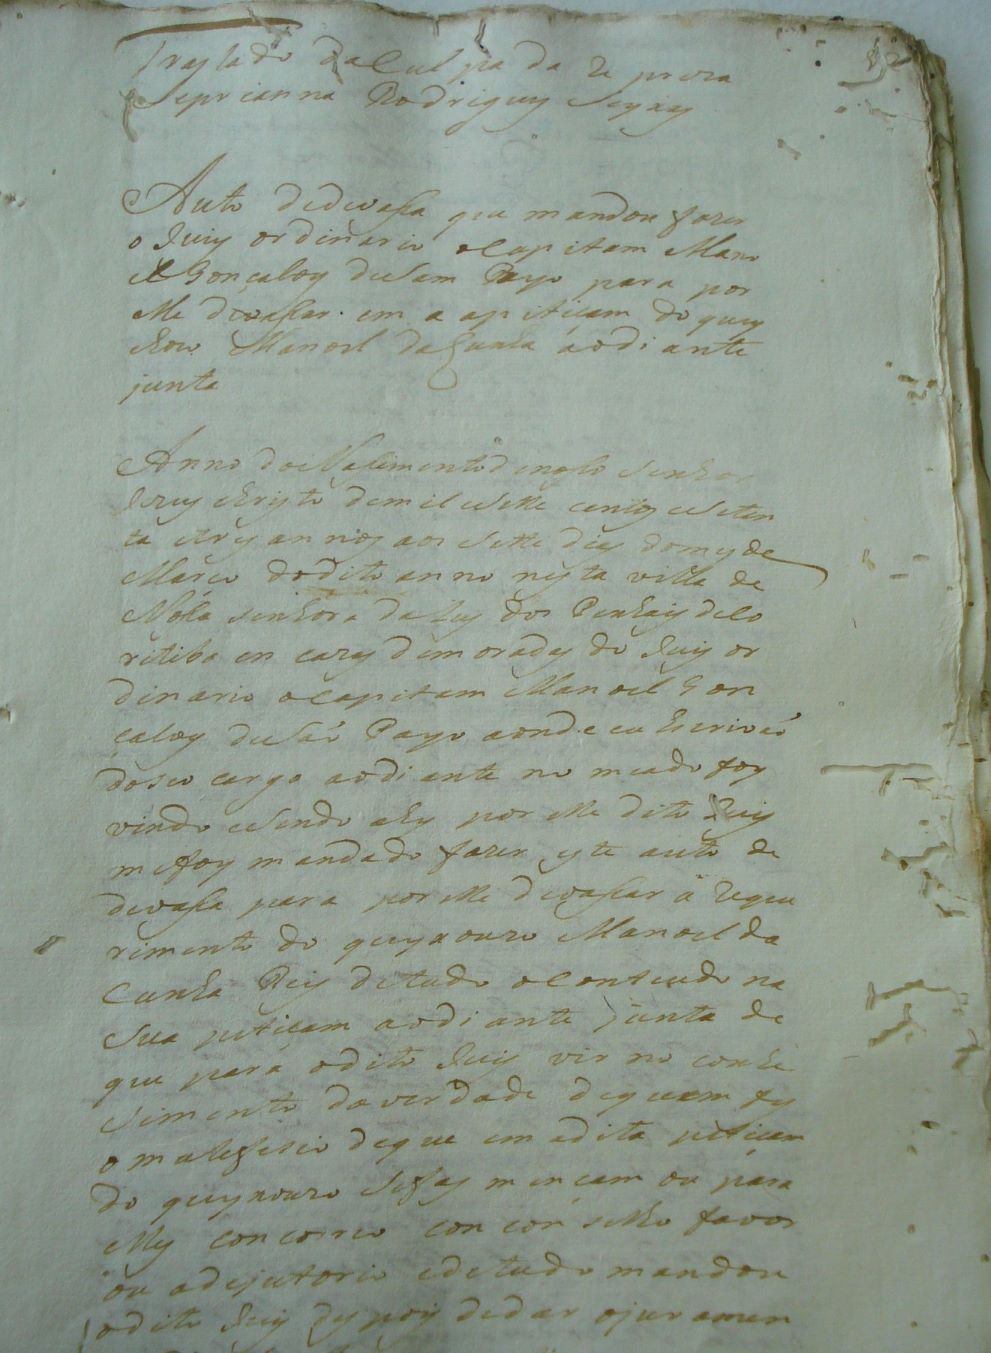 Traslado da Culpa da Re preza
Seprianna Rodriguez Seyxas
52
Auto dedevaça que mandou fazer
o Juiz ordinario o Capitam Mano
el Gonçalves de Sam Payo para por
elle devaçar em a apitiçam do quey
xozo Manoel da Cunha aodiante
junta
Anno do Nasimento de nosso Senhor
Jezus christo de mil e Sette centos e Seten
ta e tres annos aos Sette dias do mes de
Marco do dito anno nesta villa de
Nossa Senhora da Luz dos Pinhais de Co
ritiba em cazas de moradas do Juiz or
dinario o Capitam Manoel Gon
calves de São Payo aonde eu Escrivão
do seu cargo aodiante nomeado foy
vindo e Sendo ahy por elle dito Juiz
me foy mandado fazer este auto de
devaça para por elle devaçar a reque
rimento do queyxozo Manoel da
Cunha de tudo o Contiudo na
Sua petiçam aodiante junta de
que para o dito Juiz vir no conhe
simento da verdade de quem fes
o malefisio de que em a dita petiçam
do queyxozo Se fas mençam ou para
elles concorreo com conselho favor
ou adejutorio e de tudo mandou
o dito Juiz depois de dar o juramen